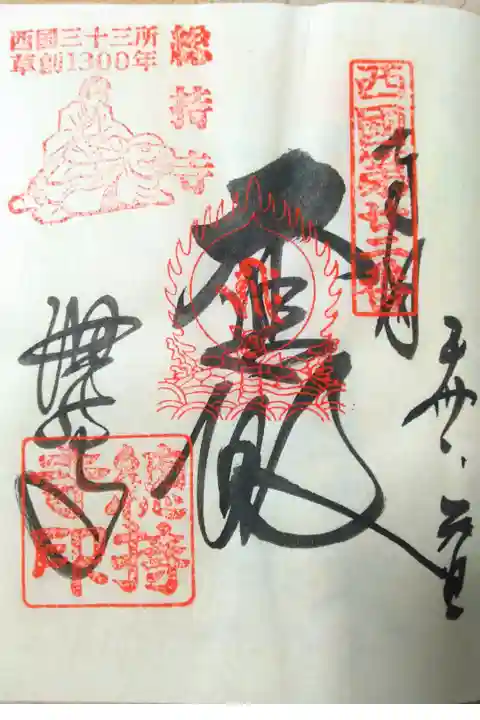 西國三十三所
草創1300年
総持寺
西國第廿二番
奉拝
大悲殿
総持寺
総持寺印